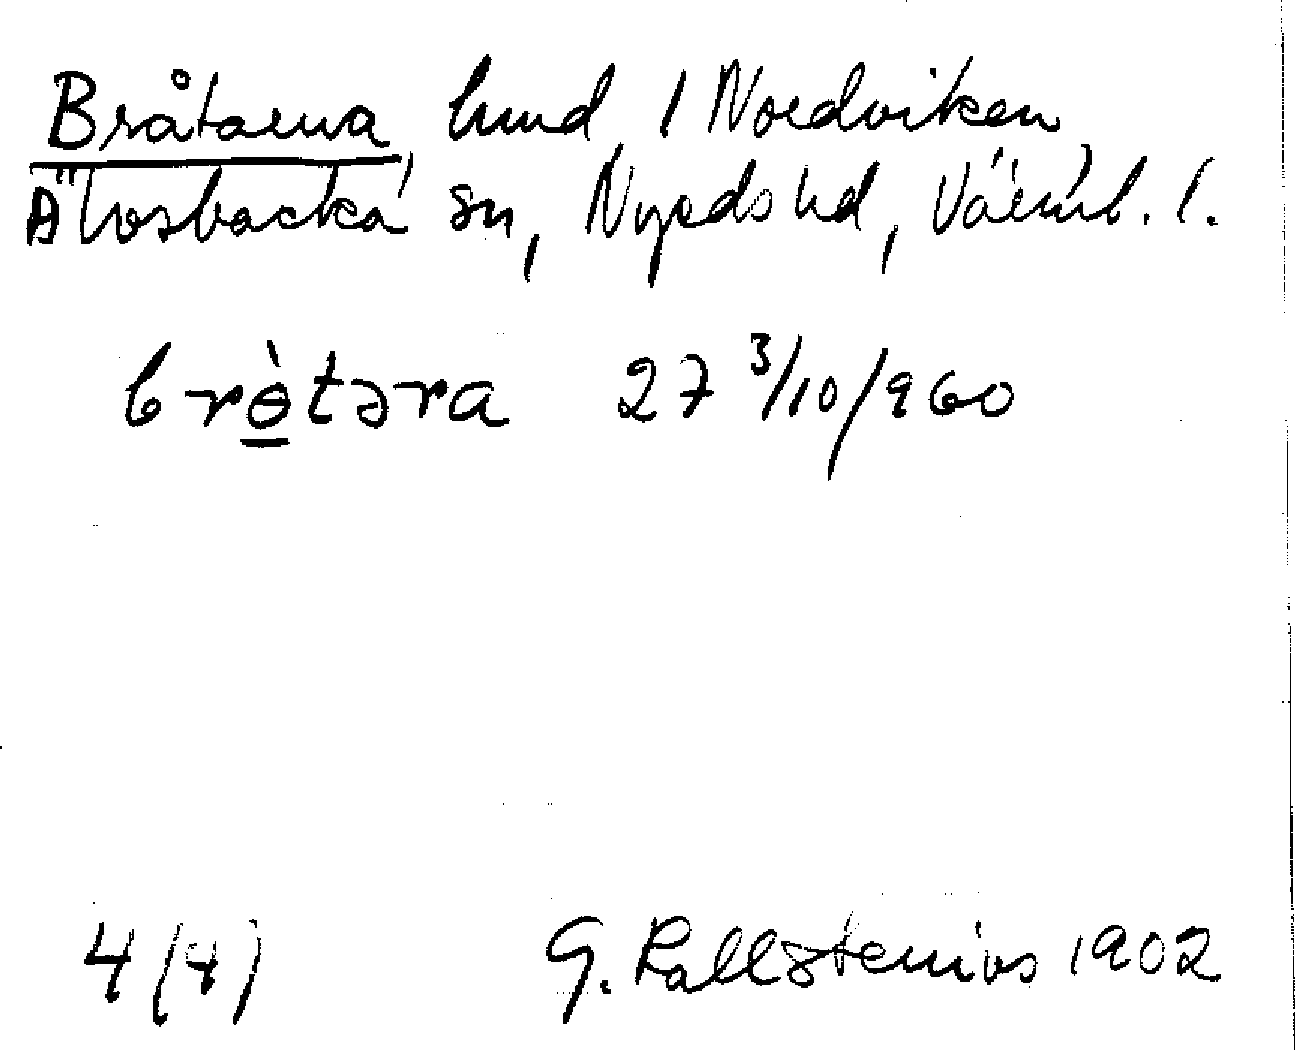 Bråtarna, hmd, i Nordviken,
Älvsbacka sn, Nyeds hd, Värml. l.
brɵ̀təra 27 3/10/960
4 (4) G. Kallstenius 1902